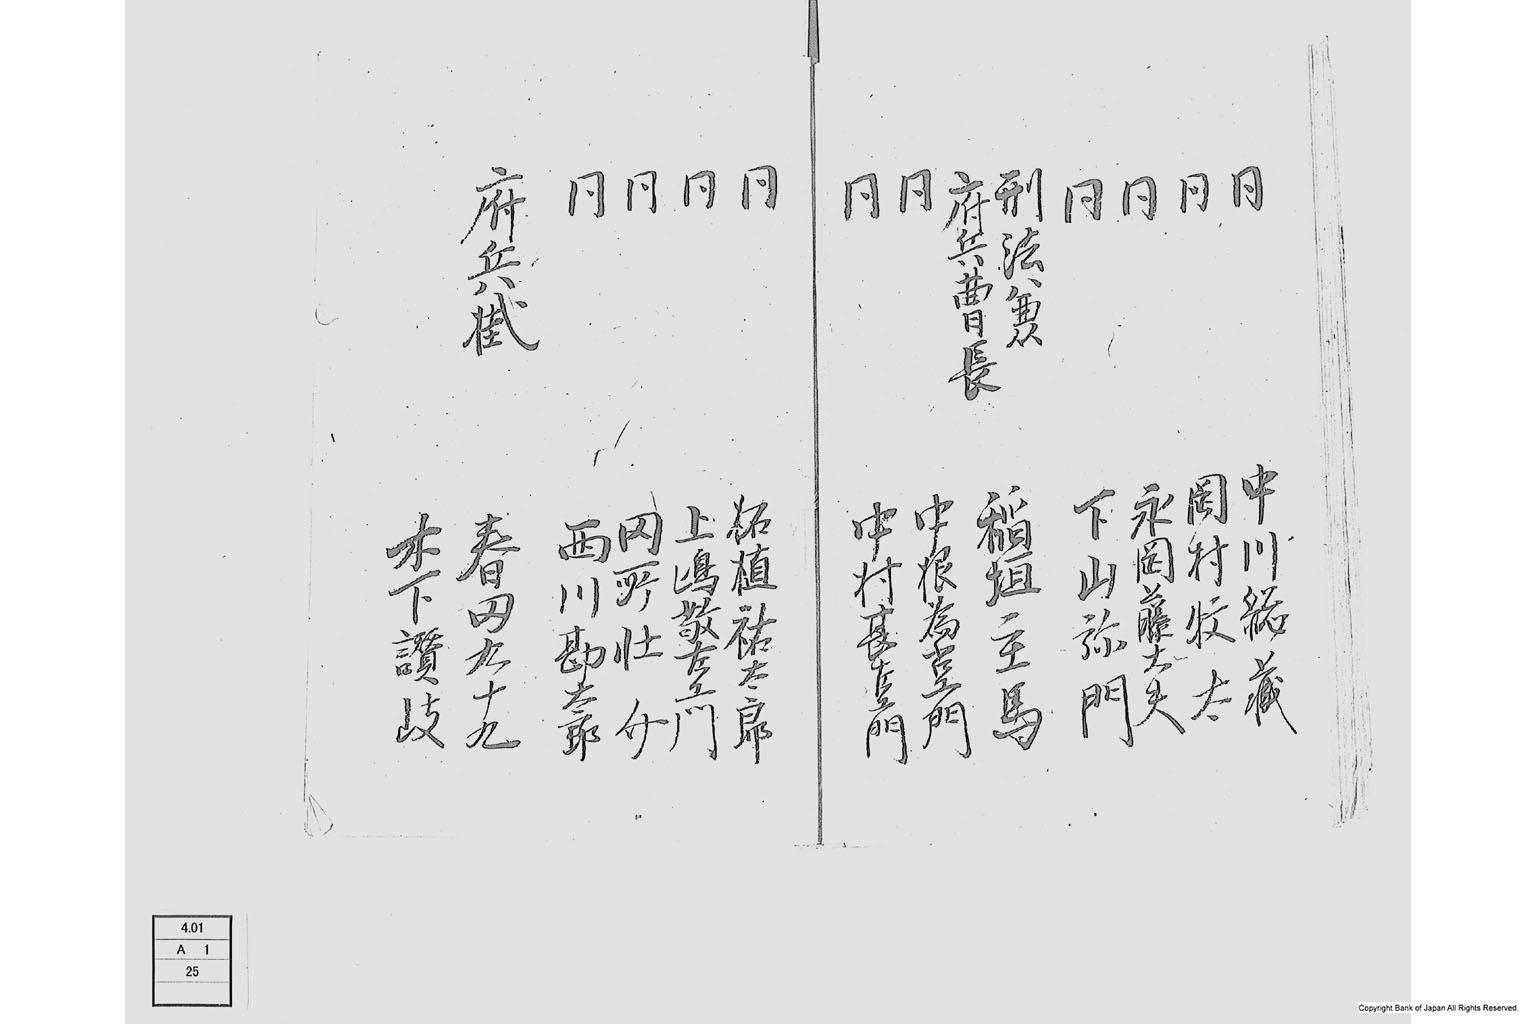 同　中川　藏
同　岡村牧太
同　永岡藤太夫
同　下山弥門
刑法兼
府兵曹長　稲垣主馬
同　中根為右衛門
同　中村甚左衛門
同　柘植祐太郎
同　上嶋敬左衛門
同　岡野壮介
同　西川勘太郎
府兵掛
春田九十九
木下讃岐
4.01
A 1
25
Copyright Bank of Japan All Rights Reserved.